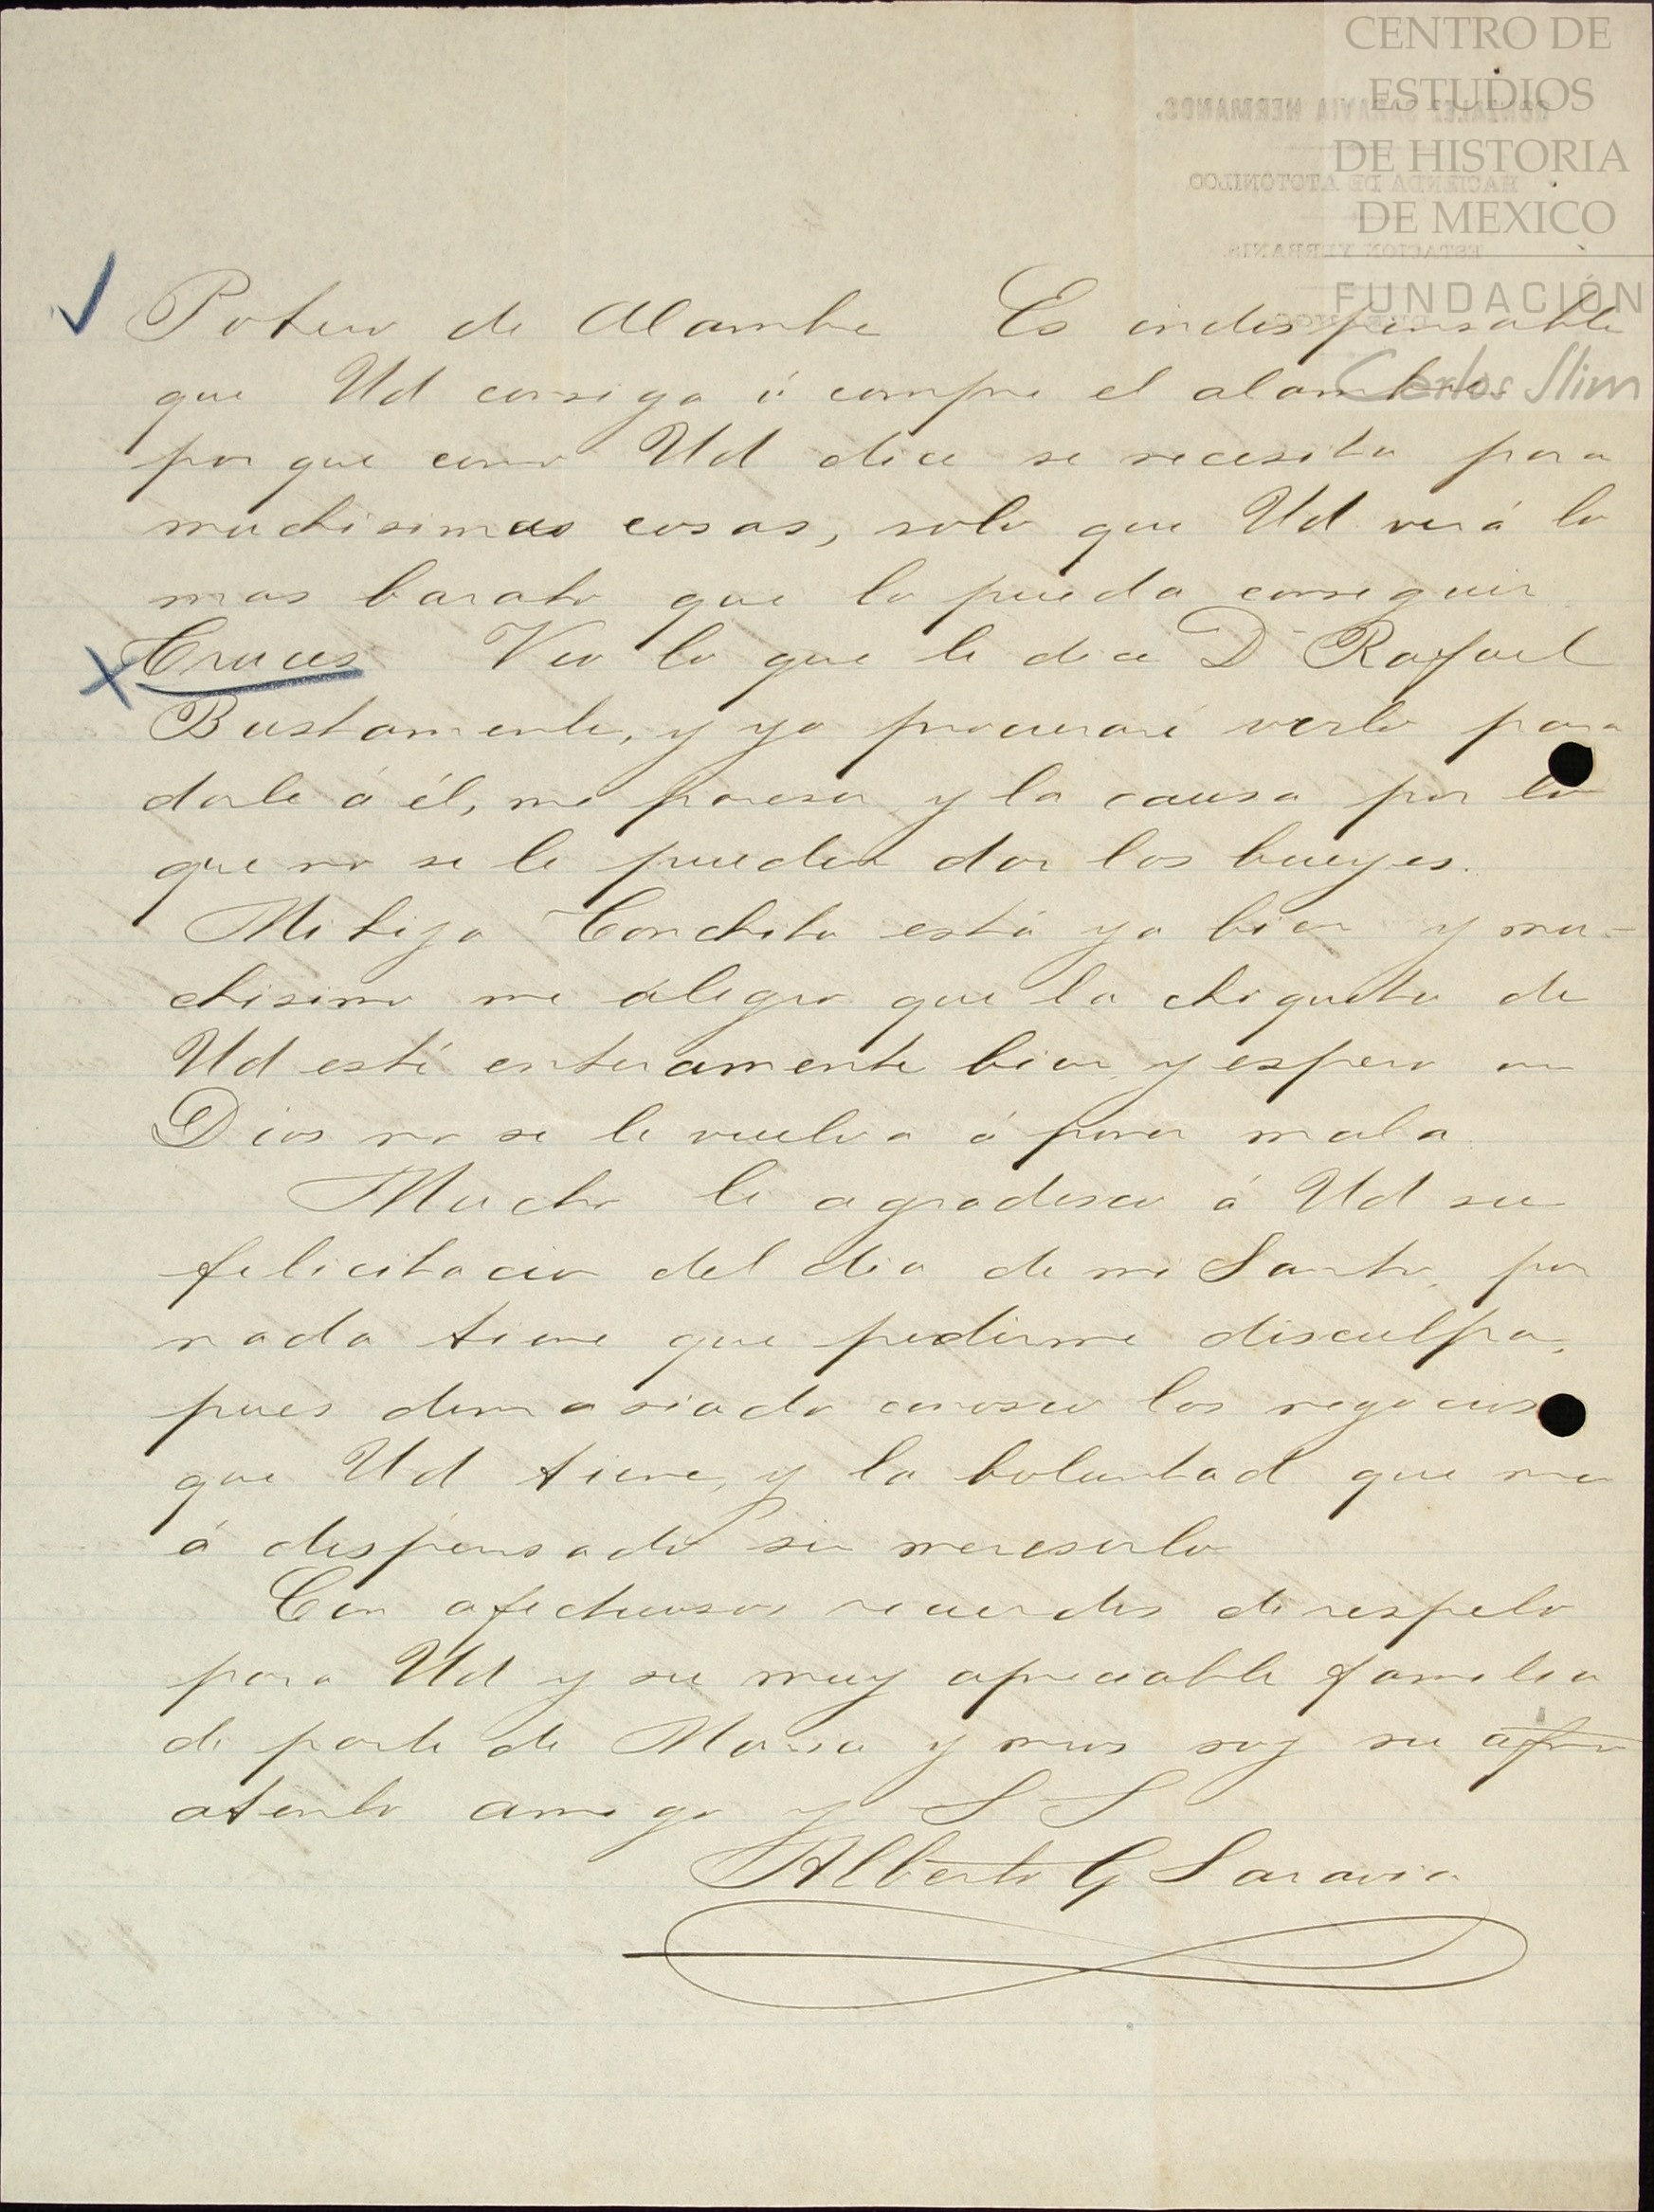 CENTRO DE
ESTUDIOS
DE HISTORIA
DE MEXICO
FUNDACIÓN
Carlos Slim
GONZALEZ SARAVIA HERMANOS.
HACIENDA DE ATOTONILCO
ESTACION YERBANIS
Potrero de Alambre Es indispensable
que Ud consiga ó compre el alambre
por que como Ud dice se necesita para
muchisimas cosas, solo que Ud verá lo
mas barato que lo pueda conseguir
Cruces Veo lo que le dice Dn Rafael
Bustamente, y yo procuraré verlo para
darle á él, me parese y la causa por lo
que no se le pueden dar los bueyes.
Mi hija Conchita está ya bien y mu-
chisimo me alegro que la chiquita de
Ud esté enteramente bien, y espero en
Dios no se le vuelva á poner mala
Mucho le agradesco á Ud su
felicitacion del dia de mi Santo, por
nada tiene que pedirme disculpa,
pues demasiado conosco los negocios
que Ud tiene, y la boluntad que me
á dispensado sin mereserlo
Con afectuosos recuerdos de respeto
para Ud y su muy apreciable familia
de parte de Maria y mios soy su afmo
atento amigo y S S
Alberto G Saravia